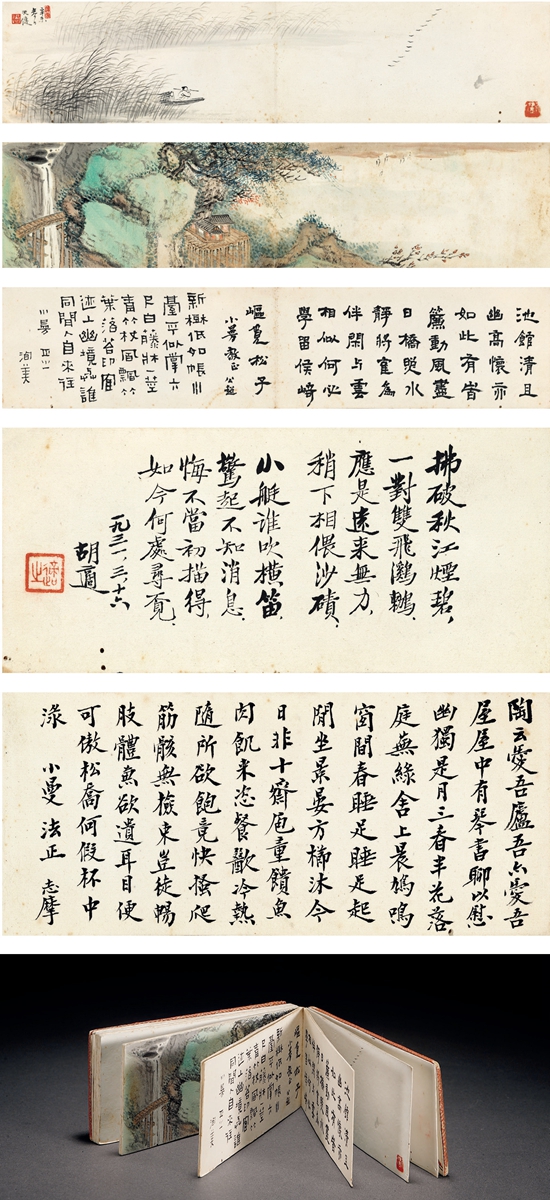 池館清且
幽高懷亦
如此有時
簾動風盡
日橋照水
靜將鶴為
伴閒與雲
相似何必
學留侯崎
嶇覓松子
小曼教正
新樹低如帳小
臺平似掌六
尺白藤牀一莖
青竹杖風飄竹
葉落苔印鶴
迹上幽境與誰
同閒人自來往
小曼 正 洵美
拂破秋江煙碧,
一對雙飛鸂鶒,
應是遠來無力,
稍下相偎沙磧,
小艇誰吹橫笛,
驚起不知消息,
悔不當初描得,
如今何處尋覓,
一九三一,三,十六
胡適
適之
陶云愛吾廬吾亦愛吾
屋屋中有琴書聊以慰
幽獨是月三春半花落
庭蕪綠舍上晨鳩鳴
窗間春睡足睡足起
閒坐景晏方櫛沐今
日非十齋庖童饋魚
肉飢來恣餐歠冷熱
隨所欲飽竟快搔爬
筋骸無檢束豈徒暢
肢體兼欲遺耳目便
可傲松喬何假杯中
淥 小曼 法正 志摩